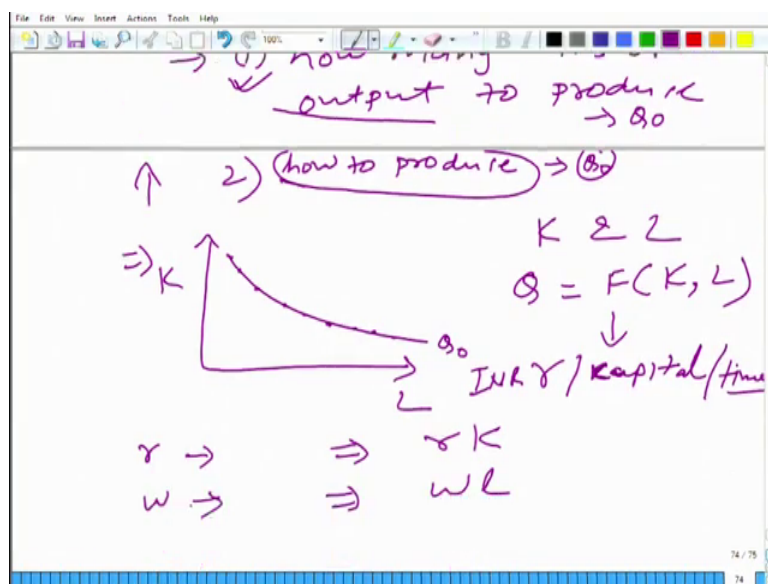 File Edit View Insert Actions Tools Help
100%
→ (1) how many
output to produce
→ Q0
2) how to produce → Q0
K & L
⇒ K
Q = F(K, L)
Q0
INR r / Kapital / time
L
r → ⇒ rK
w → ⇒ wL
74 / 75
74